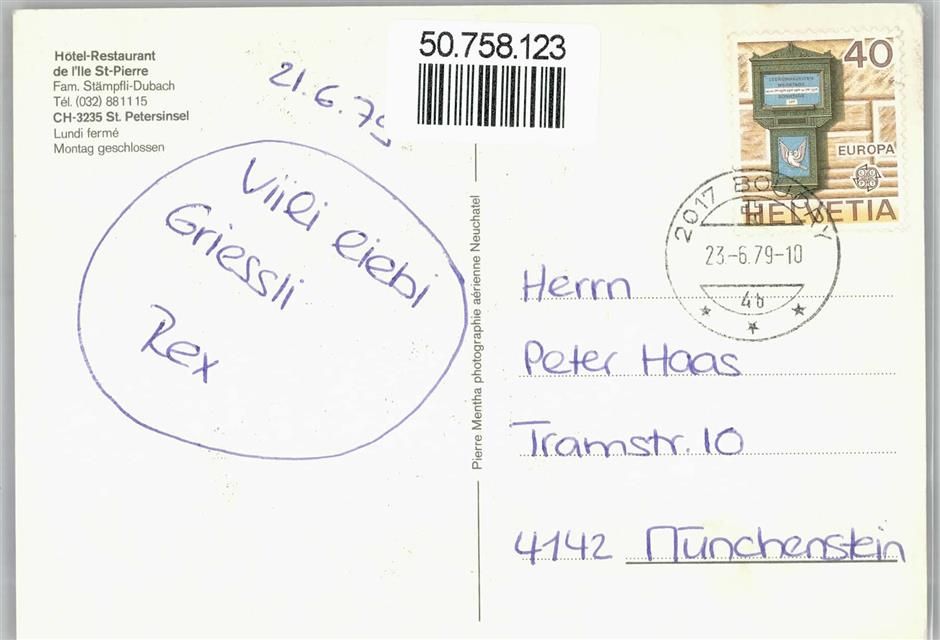 Hôtel-Restaurant
de l'Ile St-Pierre
Fam. Stämpfli-Dubach
Tél. (032) 88 11 15
CH-3235 St. Petersinsel
Lundi fermé
Montag geschlossen
21.6.79
Viili liebi
Griessli
Rex
Pierre Mentha photographie aérienne Neuchatel
50.758.123
40
EUROPA
HELVETIA
2017 BOUDRY
23.-6.79-10
4b
Herrn
Peter Haas
Tramstr. 10
4142 Münchenstein